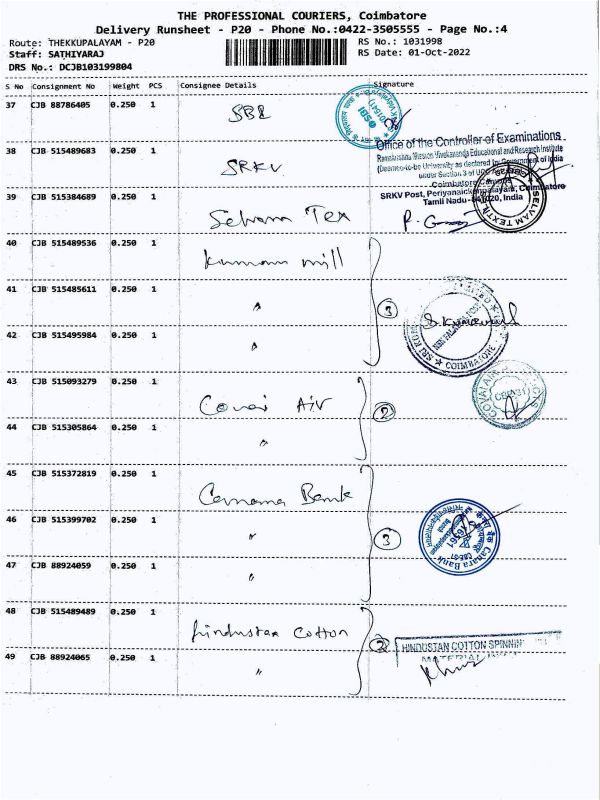 THE PROFESSIONAL COURIERS, Coimbatore
Delivery Runsheet - P20 - Phone No.:0422-3505555 - Page No.:4
Route: THEKKUPALAYAM - P20
Staff: SATHIYARAJ
DRS No.: DCJB103199804
RS No.: 1031998
RS Date: 01-Oct-2022
S No Consignment No Weight PCS Consignee Details Signature
37 CJB 88786405 0.250 1 SBI
38 CJB 515489683 0.250 1 SRKV
Office of the Controller of Examinations
Ramakrishna Mission Vivekananda Educational and Research Institute
(Deemed-to-be University as declared by Government of India
under Section 3 of UGC
Coimbatore Campus
SRKV Post, Periyanaickenpalayam, Coimbatore
Tamil Nadu-641020, India
39 CJB 515384689 0.250 1 Selvam Tex
SELVAM TEXTIL
40 CJB 515489536 0.250 1 Kumaran mill
41 CJB 515485611 0.250 1 〃 3
COIMBATORE
42 CJB 515495984 0.250 1 〃
43 CJB 515093279 0.250 1 Covai Air 2
44 CJB 515305864 0.250 1 〃
45 CJB 515372819 0.250 1 Canara Bank
46 CJB 515399702 0.250 1 〃 3
Canara Bank
47 CJB 88924059 0.250 1 〃
48 CJB 515489489 0.250 1 Hindustan Cotton 2
HINDUSTAN COTTON SPINNIN
49 CJB 88924065 0.250 1 〃